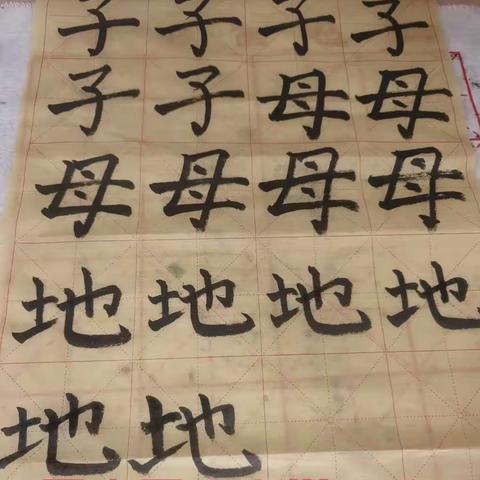 子子子子
子子母母
母母母母
地地地地
地地